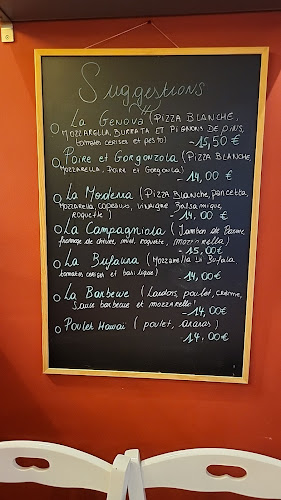 Suggestions
La Genova (PIZZA BLANCHE,
MOZZARELLA, BURRATA ET PIGNONS DE PINS,
tomates cerises et pesto)
-15,50 €
Poire et Gorgonzola (PIZZA BLANCHE,
MOZZARELLA, Poire et Gorgonzola)
-14,00 €
La Modena (Pizza Blanche, pancetta,
Mozzarella, copeaux, vinaigre Balsamique,
Roquette) -14.00 €
La Campagniola (Jambon de Parme,
fromage de chèvre, miel, roquette, mozzarella)
-15,00€
La Bufalina (Mozzarella Di Bufala
tomates cerises et basilique)
-14,00€
La Barbecue (Lardons, poulet, crème,
Sauce barbecue et mozzarella)
-14,00€
Poulet Hawai (poulet, ananas)
-14.00€